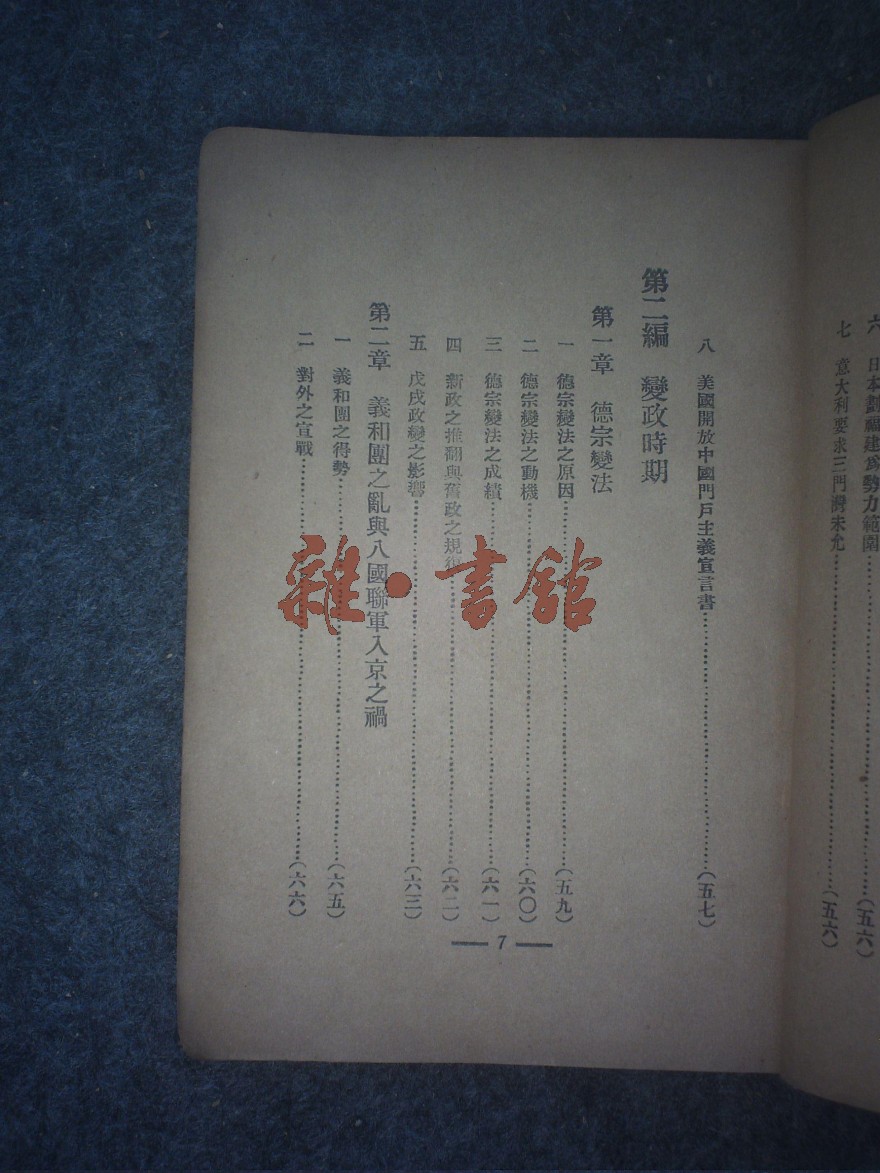 六　日本劃福建爲勢力範圍……(五六)
七　意大利要求三門灣未允……(五六)
八　美國開放中國門戶主義宣言書……(五七)
第二編　變政時期
第一章　德宗變法
一　德宗變法之原因……(五九)
二　德宗變法之動機……(六〇)
三　德宗變法之成績……(六一)
四　新政之推翻與舊政之規復……(六二)
五　戊戌政變之影響……(六三)
第二章　義和團之亂與八國聯軍入京之禍
一　義和團之得勢……(六五)
二　對外之宣戰……(六六)
— 7 —
雜·書館